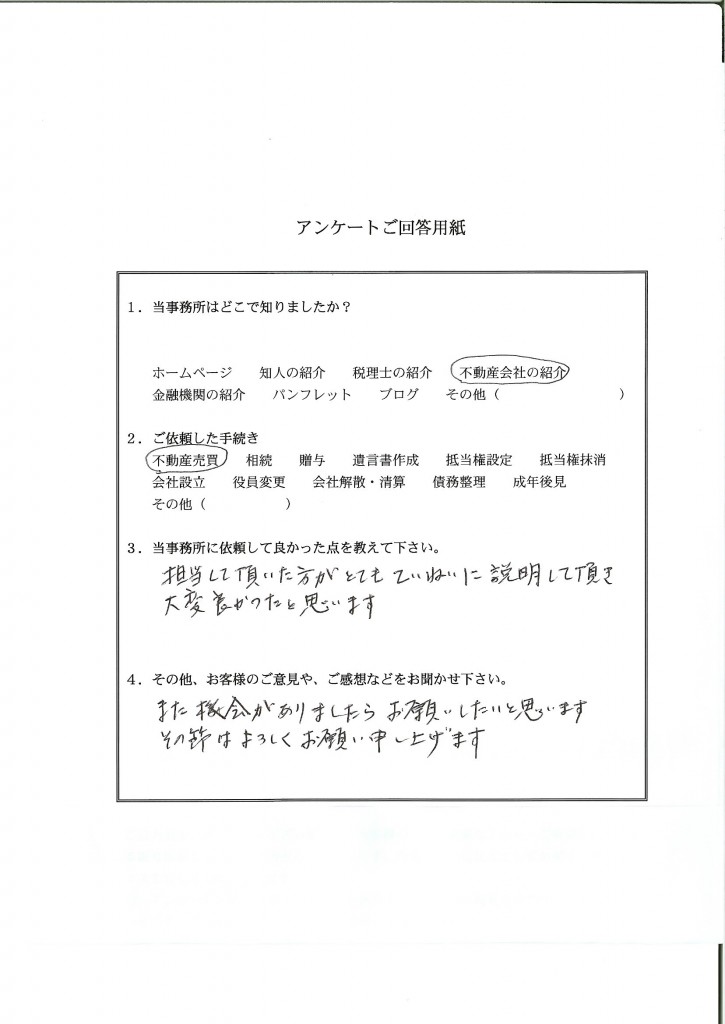 アンケートご回答用紙
1．当事務所はどこで知りましたか？
ホームページ　知人の紹介　税理士の紹介　不動産会社の紹介
金融機関の紹介　パンフレット　ブログ　その他（　　　　　　　　）
2．ご依頼した手続き
不動産売買　相続　贈与　遺言書作成　抵当権設定　抵当権抹消
会社設立　役員変更　会社解散・清算　債務整理　成年後見
その他（　　　　　　）
3．当事務所に依頼して良かった点を教えて下さい。
担当して頂いた方がとてもていねいに説明して頂き
大変良かったと思います
4．その他、お客様のご意見や、ご感想などをお聞かせ下さい。
また機会がありましたらお願いしたいと思います
その節はよろしくお願い申し上げます